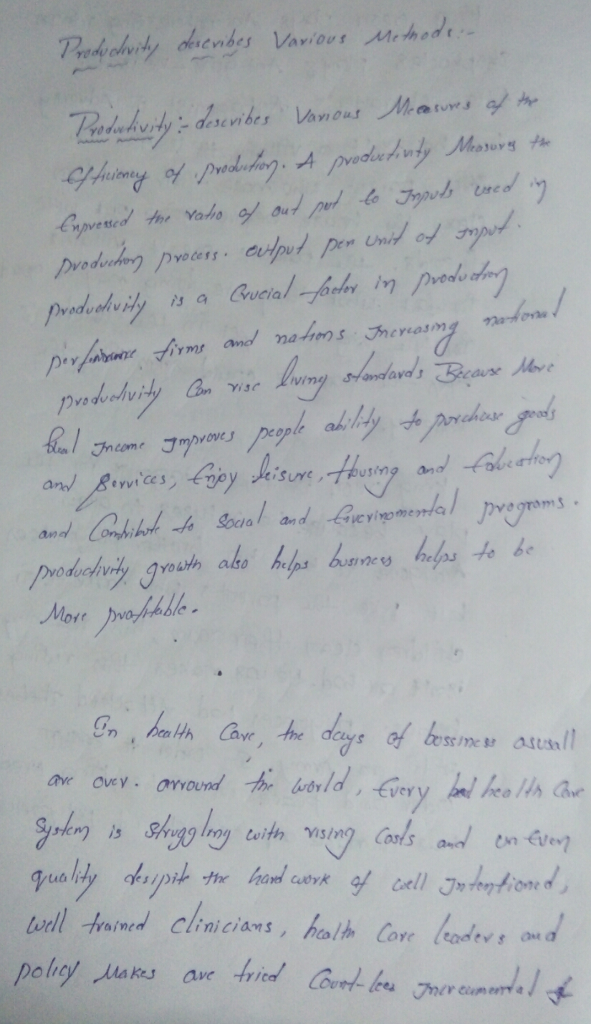 Productivity describes Various Methods:-
Productivity:- describes Various Measures of the
Efficiency of production. A productivity Measures the
Expressed the ratio of out put to Inputs used in
production process. output per unit of input.
productivity is a Crucial factor in production
firms and nations Increasing national
productivity Can rise living standards Because More
Real Income Improves people ability to purchase goods
and Services, Enjoy leisure, Housing and Education
and Contribute to Social and Enverinomental programs.
productivity growth also helps business helps to be
More profitable.
In health Care, the days of bossiness asusall
are over. arround the world, Every health Care
System is struggling with rising Costs and un Even
quality desipite the hard work of well Intentioned,
well trained clinicians, health Care leaders and
policy Makes are tried Count-less Increamental